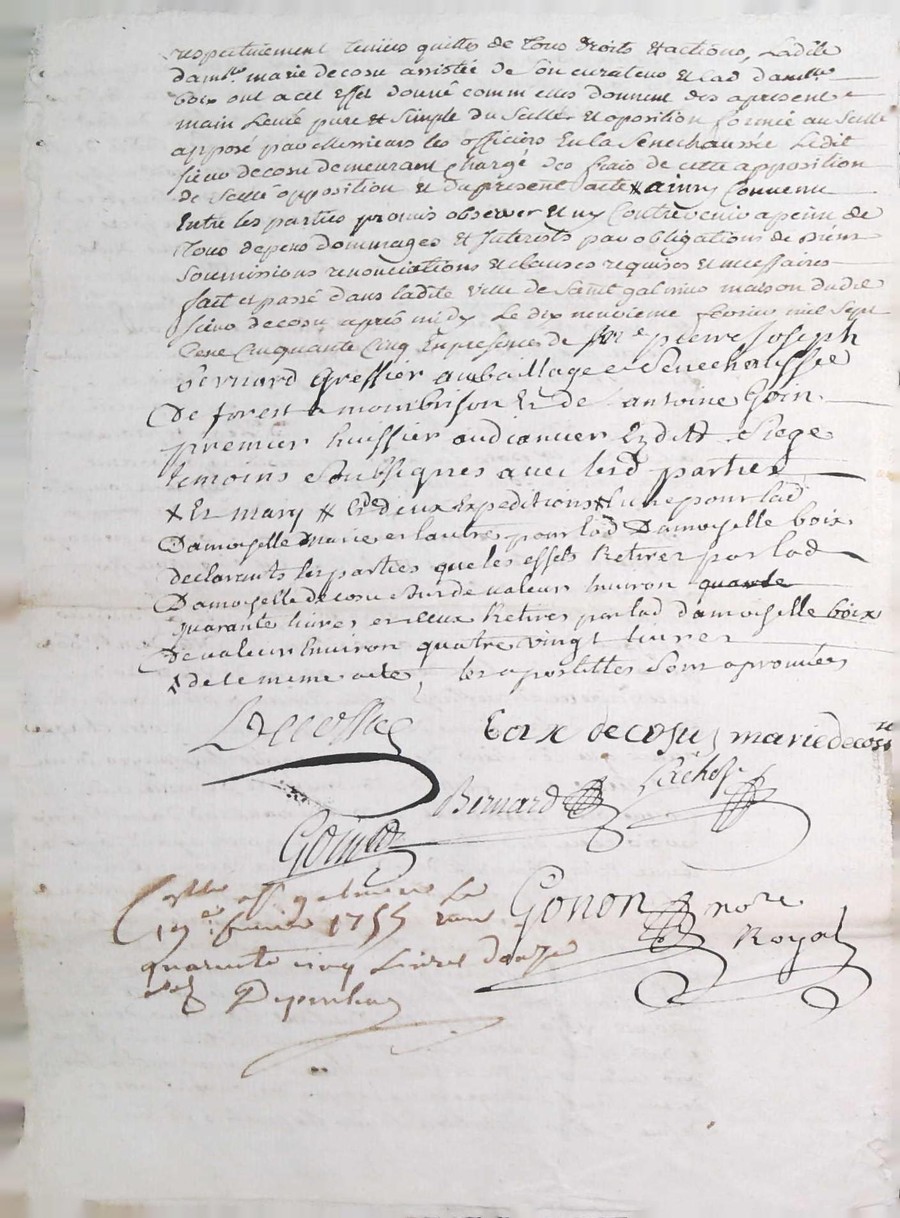 respectivement tenües quittes de tous droits et actions, Ladite
damlle. marie decosu assistée de son curateur et lad. damlle
boix ont a cet Effet donné comm elles donnent des apresent
main Levée pure et simple du scellé et oposition formée au scellé
apposé par Messieurs les officiers En la Senechaussée Ledit
sieur decosu demeurant Chargé des frais de cette apposition
de scellé opposition et du present acte # ainsy Convenu
Entre les parties promis observer et ny Contrevenir a peine de
tous depens dommages et Interests par obligations de biens
soumissions renonciations et clauses requises et necessaires
fait et passé dans ladite ville de saint galmier maison dudit
sieur decosu après midy Le dix neuvieme fevrier mil sept
Cent Cinquante Cinq En presences de pierre Joseph
bernard Greffier au baillage et Senechaussée
De forest a montbrison Et de antoine Goin
premier huissier audiancier Audit Siege
temoins soussignes avec lesd parties
x Et mary # Et deux Expeditions # lune pour lad
Damoiselle Marie et lautre pour lad Damoiselle boix
declarants les parties que les effets Retires par lad
Damoiselle decosu sur de valeur Environ quarte
quarante livres et ceux Retires par lad damoiselle boix
De valeur Environ quatre vingt livres
x de le meme acte, les apostilles sont aprouvées
Decosu
boix decosu marie decosu
Bernard
Goin
Gonon nore
Royal
Con͞lle a st galmier Le
19e. fevrier 1755 recu
quarente cinq Livres douze
sols